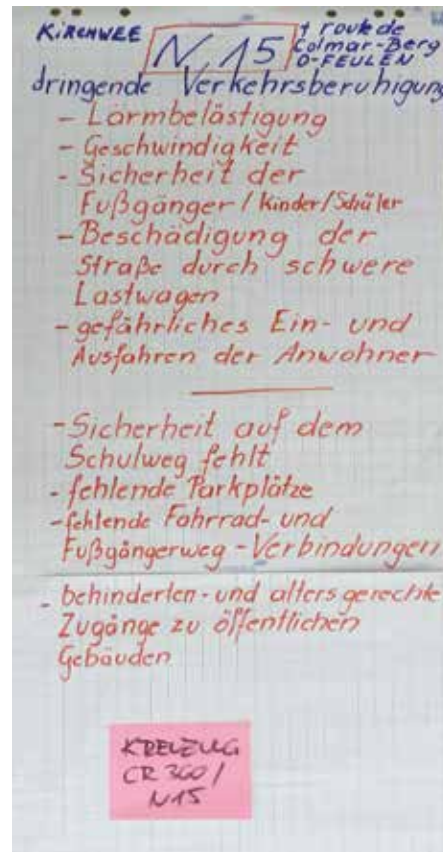 KiRCHWEE
N 15
+ route de
Colmar-Berg
O-FEULEN
dringende Verkehrsberuhigung
- Lärmbelästigung
- Geschwindigkeit
- Sicherheit der
Fußgänger / Kinder/Schüler
- Beschädigung der
Straße durch schwere
Lastwagen
- gefährliches Ein- und
Ausfahren der Anwohner
- Sicherheit auf dem
Schulweg fehlt
- fehlende Parkplätze
- fehlende Fahrrad- und
Fußgängerweg - Verbindungen
- behinderten- und altersgerechte
Zugänge zu öffentlichen
Gebäuden
CR 360 /
N15